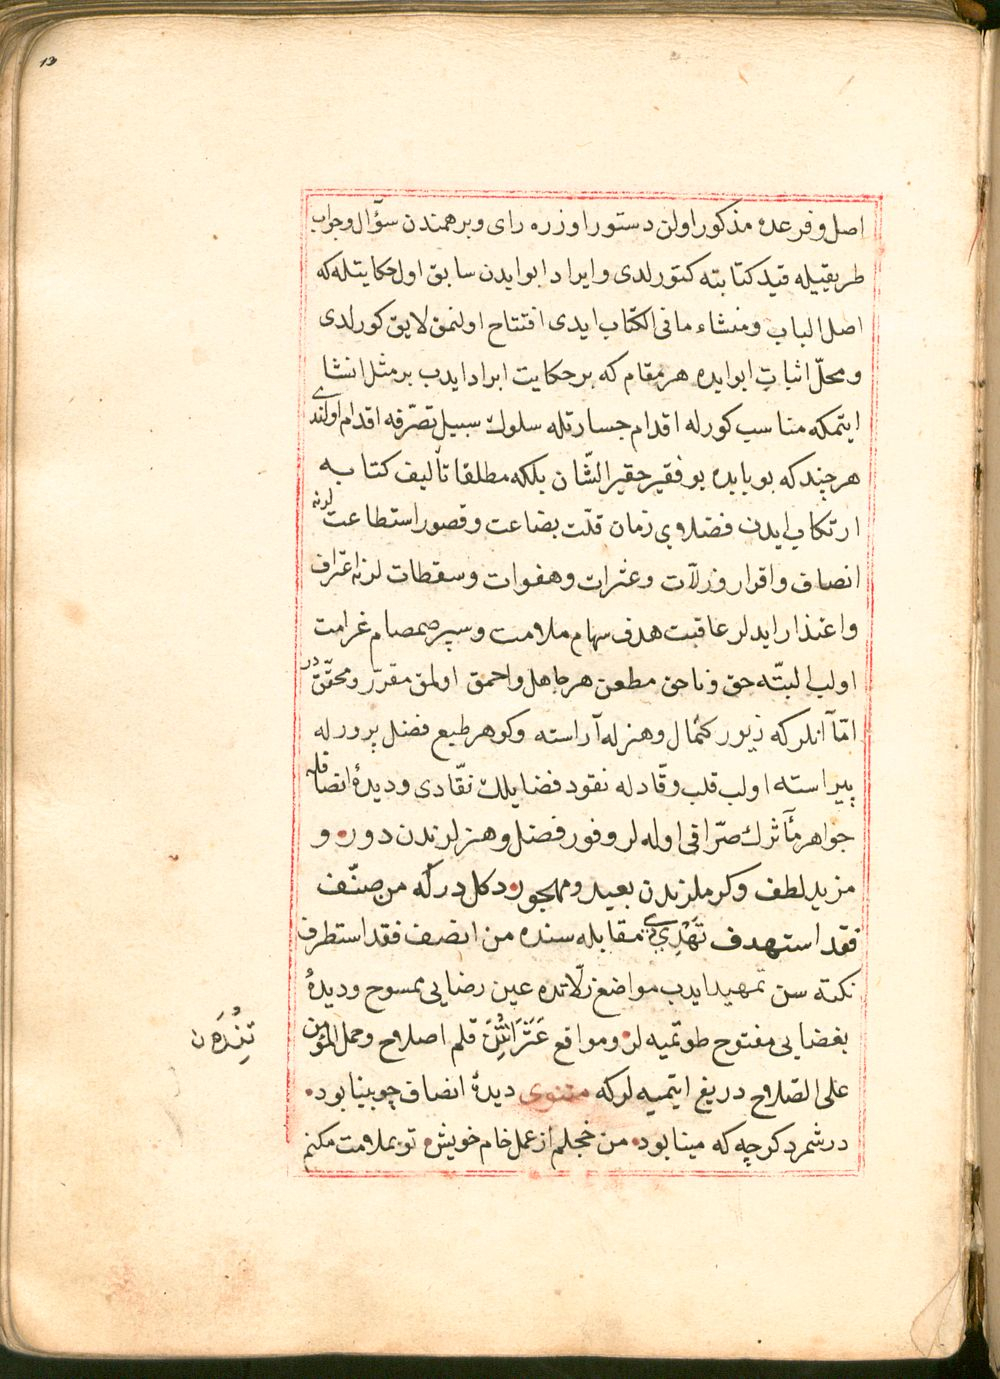 12
اصل و فرعده مذكور اولن دستور اوزره رای و برهمندن سؤال و جواب
طريقيله قيد كتابته كتورلدى و ايراد ابوابدن سابق اول حكايتله كه
اصل الباب و منشاء ما فى الكتاب ايدى افتتاح اولنمق لايق كورلدى
و محلّ اثباتِ ابوابده هر مقام كه بر حكايت ايراد ايدب بر مثل انشاى
ايتمكه مناسب كورله اقدام جسارتله سلوك سبيل تصرّفه اقدام اولندى
هر چند كه بو بابده بو فقير حقير الشّان بلكه مطلقا تأليف كتابه
ارتكاب ايدن فضلاى زمان قلّت بضاعت و قصور استطاعت لرنه
انصاف و اقرار و زلّات و عثرات و هفوات و سقطات لرنه اعتراف
و اعتذار ايدلر عاقبت هدف سهام ملامت و سپر صمصام غرامت
اولب البتّه حق و ناحق مطعن هر جاهل و احمق اولمق مقرّر و محقّق در
امّا آنلر كه زيور كمال و هنرله آراسته و كوهر طبع فضل پرورله
پيراسته اولب قلب وقّادله نقود فضايلك نقّادى و ديدهٔ انصافله
جواهر مآثرك صرّافى اوله لر وفور فضل و هنرلرندن دور و
مزيد لطف و كرملرندن بعيد و مهجور دكلدر كه من صنّف
فقد استهدف تهديدى مقابله سنده من انصف فقد استطرف
نكته سن تمهيد ايدب مواضع زلّاتده عين رضايى ممسوح و ديدهٔ
بغضايى مفتوح طوتميه لر و مواقع عَثَرَاتْدَن قلم اصلاح و حمل المؤمن
على الصّلاح دريغ ايتميه لر كه مثنوى ديدهٔ انصاف چو بينا بود
در شمرد كرچه كه مينا بود من خجلم از عمل خام خويش تو بملامت مكنم